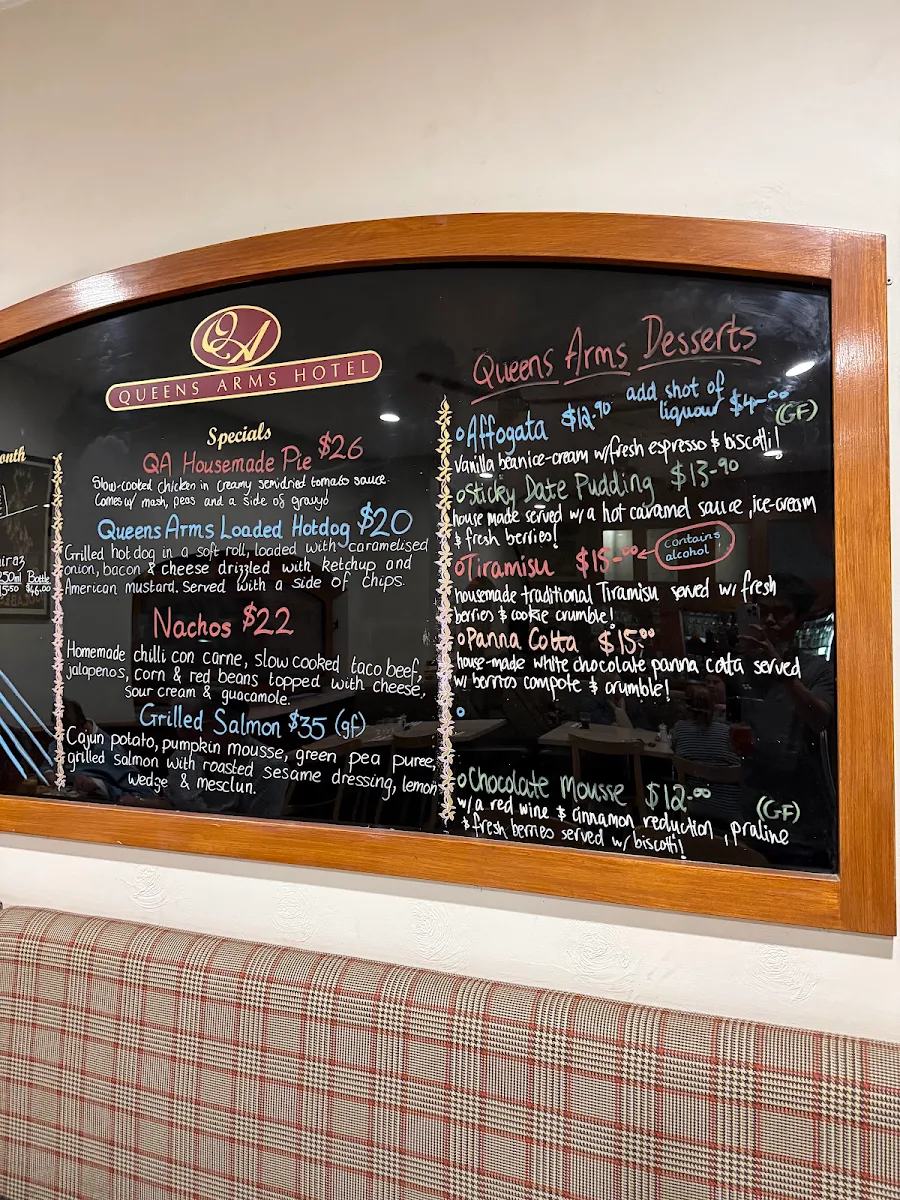 onth
iraz
250ml Bottle
15.50 $46.00
QA
QUEENS ARMS HOTEL
Specials
QA Housemade Pie $26
Slow-cooked chicken in creamy semidried tomato sauce.
Comes w/ mash, peas and a side of gravy!
Queens Arms Loaded Hotdog $20
Grilled hot dog in a soft roll, loaded with caramelised
onion, bacon & cheese drizzled with ketchup and
American mustard. Served with a side of chips.
Nachos $22
Homemade chilli con carne, slow cooked taco beef,
jalapenos, corn & red beans topped with cheese,
Sour cream & guacamole.
Grilled Salmon $35 (gf)
Cajun potato, pumpkin mousse, green pea puree,
grilled salmon with roasted sesame dressing, lemon
wedge & mesclun.
Queens Arms Desserts
Affogata $12.90 add shot of
liquour $4-00
(GF)
vanilla beanice-cream w/fresh espresso & biscotti!
Sticky Date Pudding $13-90
house made served w/ a hot caramel sauce, ice-cream
& fresh berries!
Tiramisu $15-00 Contains
alcohol
housemade traditional Tiramisu served w/ fresh
berries & cookie crumble!
Panna Cotta $15.00
house-made white chocolate panna cotta served
w/ berries compote & crumble!
Chocolate Mousse $12-00 (GF)
w/a red wine & cinnamon reduction, praline
& fresh berries served w/ biscotti!